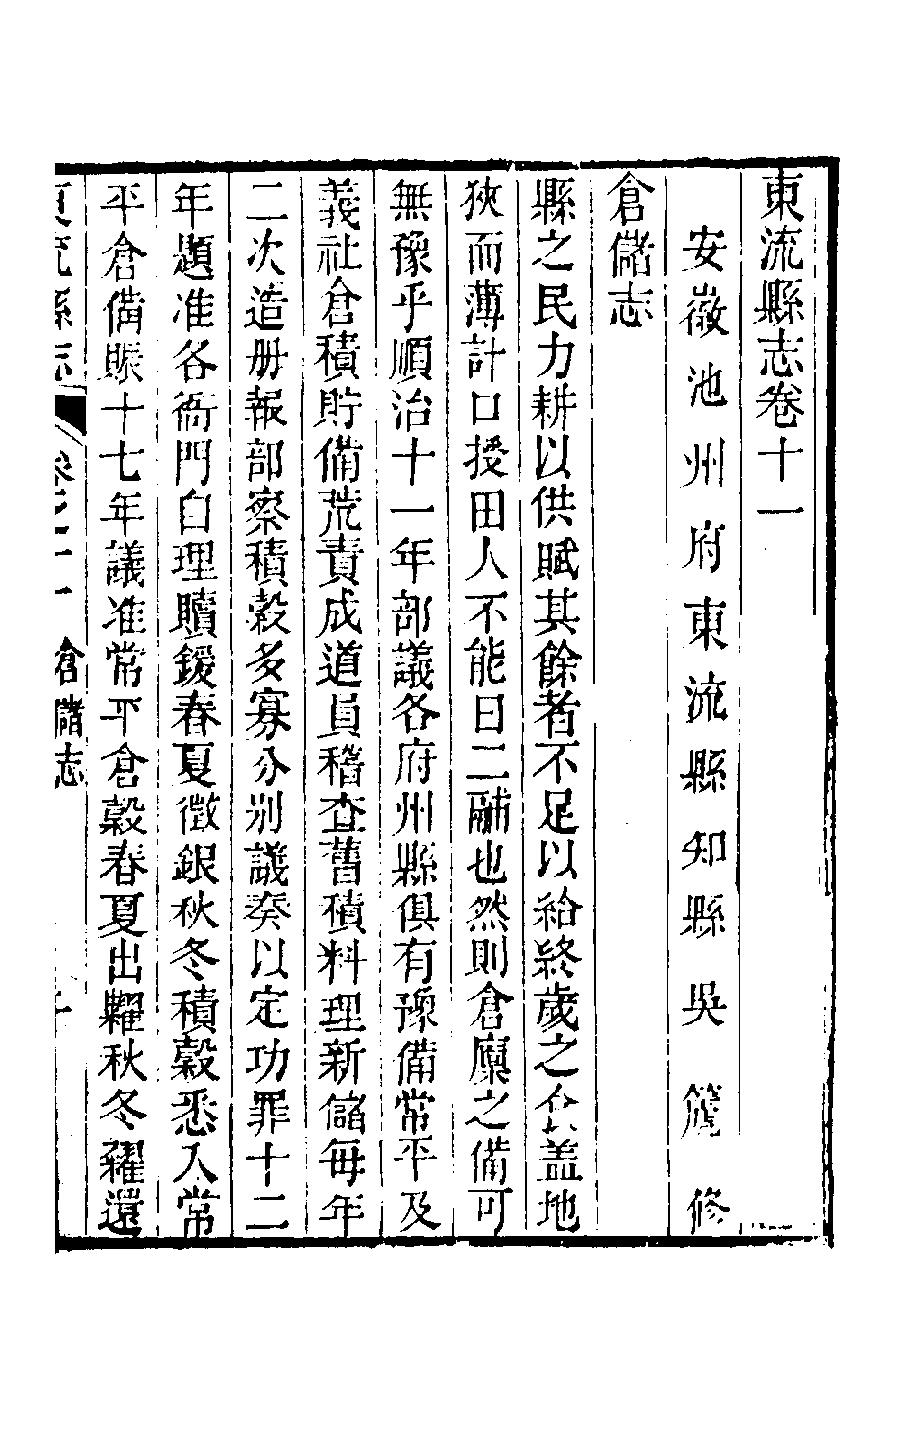 東流縣志卷十一
安徽池州府東流縣知縣吳篪修
倉儲志
縣之民力耕以供賦其餘者不足以給終歲之食盖地
狹而薄計口授田人不能日二鬴也然則倉廩之備可
無豫乎順治十一年部議各府州縣俱有豫備常平及
義社倉積貯備荒責成道員稽查舊積料理新儲每年
二次造册報部察積穀多寡分别議奏以定功罪十二
年題准各衙門自理贖鍰春夏徵銀秋冬積穀悉入常
平倉備賑十七年議准常平倉穀春夏出糶秋冬糴還
東流縣志 卷之十一 倉儲志